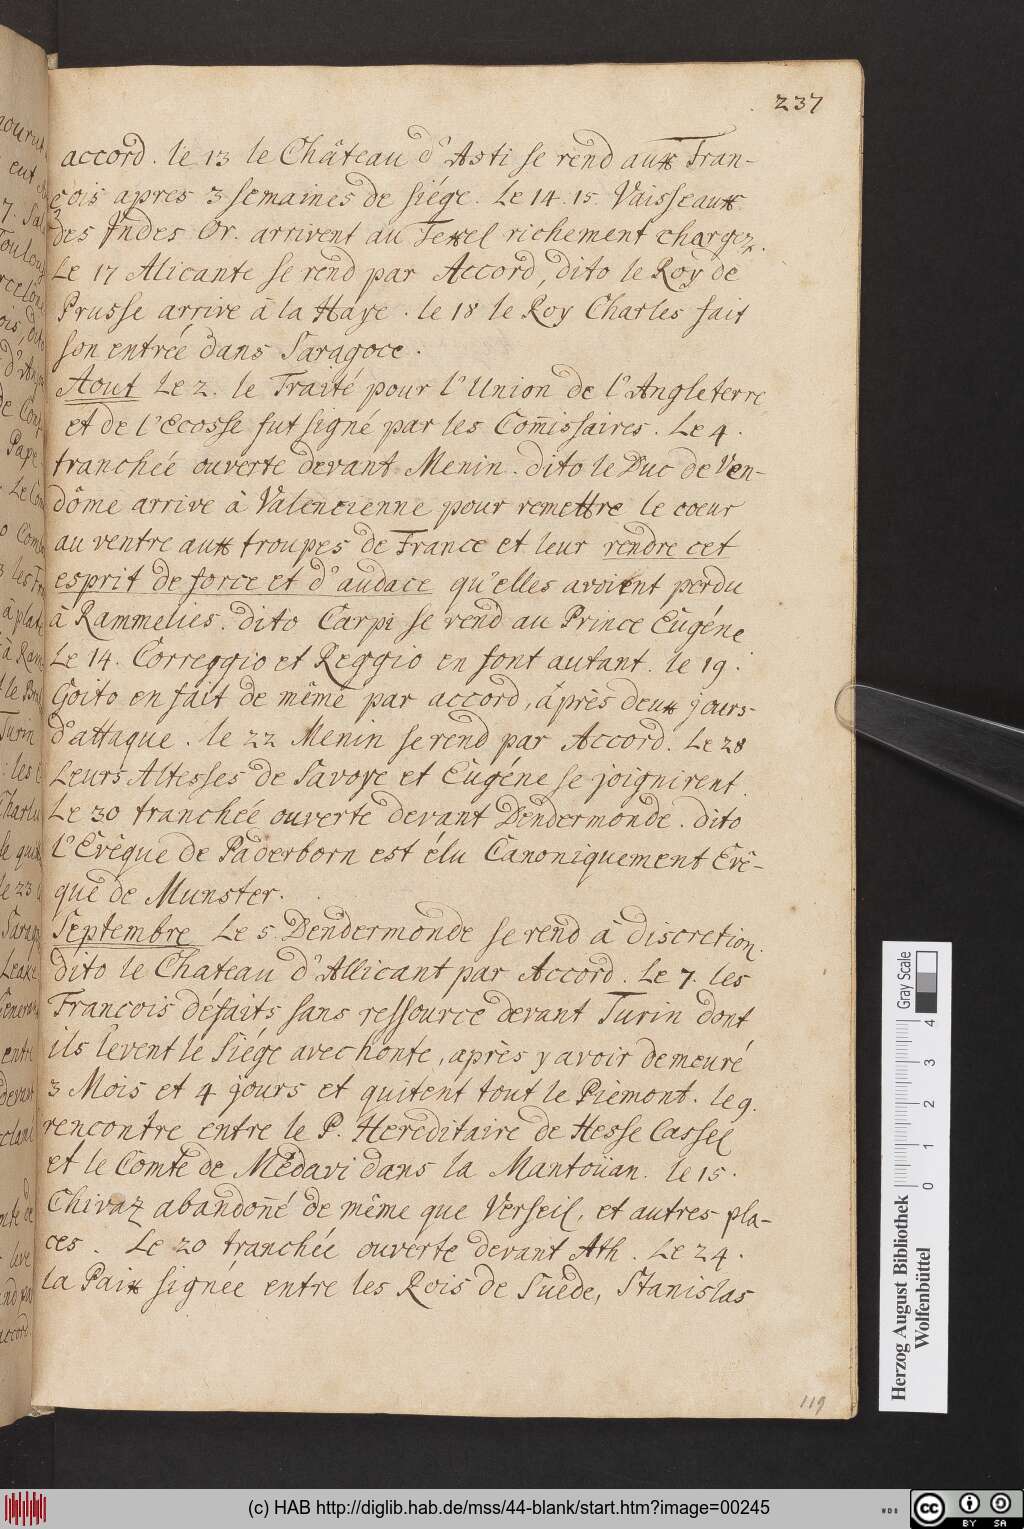 237
accord. le 13 le Château d'Asti se rend aux Fran-
çois apres 3 semaines de siége. Le 14. 15. Vaisseaux
des Indes Or. arrivent au Texel richement chargez.
Le 17 Alicante se rend par Accord, dito le Roy de
Prusse arrive à la Haye. le 18 le Roy Charles fait
son entrée dans Saragoce.
Aout Le 2. le Traité pour l'Union de l'Angleterre
et de l'Ecosse fut signé par les Com̄issaires. Le 4.
tranchée ouverte devant Menin. dito le Duc de Ven-
dôme arrive à Valencienne pour remettre le coeur
au ventre aux troupes de France et leur rendre cet
esprit de force et d'audace qu'elles avoient perdu
à Rammelies. dito Carpi se rend au Prince Eugéne
Le 14. Correggio et Reggio en font autant. le 19.
Goito en fait de même par accord, après deux jours-
d'attaque. le 22 Menin se rend par Accord. Le 28
Leurs Altesses de Savoye et Eugéne se joignirent.
Le 30 tranchée ouverte devant Dendermonde. dito
l'Evêque de Paderborn est élu Canoniquement Evê-
que de Munster.
Septembre Le 5. Dendermonde se rend à discretion.
dito le Chateau d'Allicant par Accord. Le 7. les
Francois défaits sans ressource devant Turin dont
ils levent le Siége avec honte, après y avoir demeuré
3 Mois et 4 jours et quitent tout le Piémont. le 9.
rencontre entre le P. Hereditaire de Hesse Cassel
et le Comte de Médavi dans la Mantoüan. le 15.
Chivaz abandon̄é de même que Verseil, et autres pla-
ces. Le 20 tranchée ouverte devant Ath. Le 24.
la Paix signée entre les Rois de Suéde, Stanislas
119
Gray Scale
0 1 2 3 4
Herzog August Bibliothek
Wolfenbüttel
(c) HAB http://diglib.hab.de/mss/44-blank/start.htm?image=00245
WDB
cc BY SA